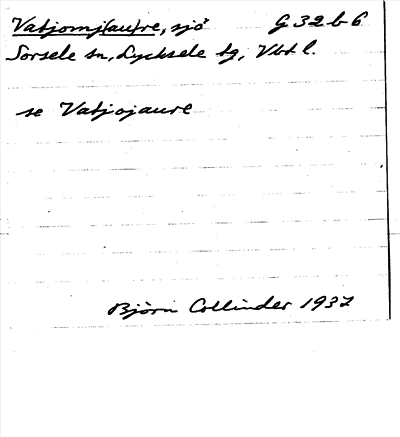 Vatjomj(au)re, sjö G 32 b 6
Sorsele sn, Lycksele lg, Vbt l.
se Vatjojaure
Björn Collinder 1937